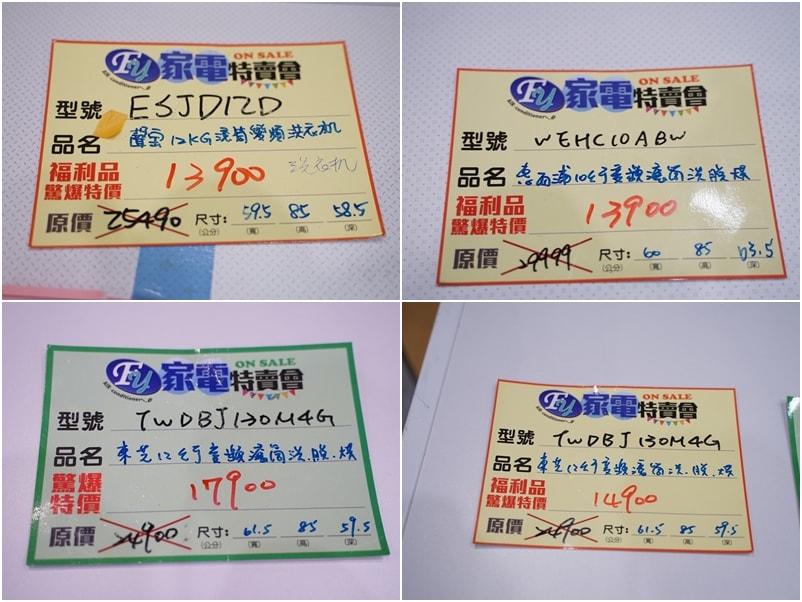 Fy 家電特賣會 ON SALE
Air-conditioner
型號 ESJD12D
品名 聲宝12KG滾筒變頻洗衣机
洗衣机
福利品
驚爆特價 13900
原價 25490 尺寸: 59.5 85 58.5
(公分) (寬) (高) (深)
Fy 家電特賣會 ON SALE
Air-conditioner
型號 WEHC10ABW
品名 惠而浦10公斤變頻滾筒洗脫烘
福利品
驚爆特價 13900
原價 29999 尺寸: 60 85 63.5
(公分) (寬) (高) (深)
Fy 家電特賣會 ON SALE
Air-conditioner
型號 TWDBJ130M4G
品名 東芝12公斤變頻滾筒洗.脫.烘
驚爆
特價 17900
原價 24900 尺寸: 61.5 85 59.5
(公分) (寬) (高) (深)
Fy 家電特賣會 ON SALE
Air-conditioner
型號 TWDBJ130M4G
品名 東芝12公斤變頻滾筒洗.脫.烘
福利品
驚爆特價 14900
原價 24900 尺寸: 61.5 85 59.5
(公分) (寬) (高) (深)